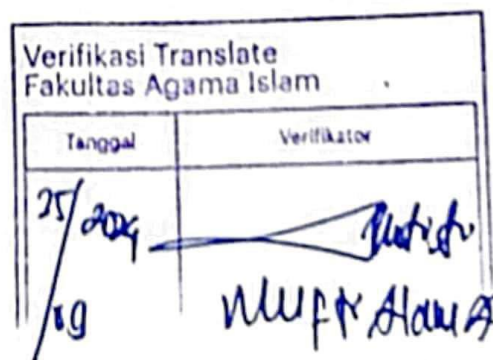 Verifikasi Translate
Fakultas Agama Islam
Tanggal Verifikator
25/2024
/09
Mufti Alam A